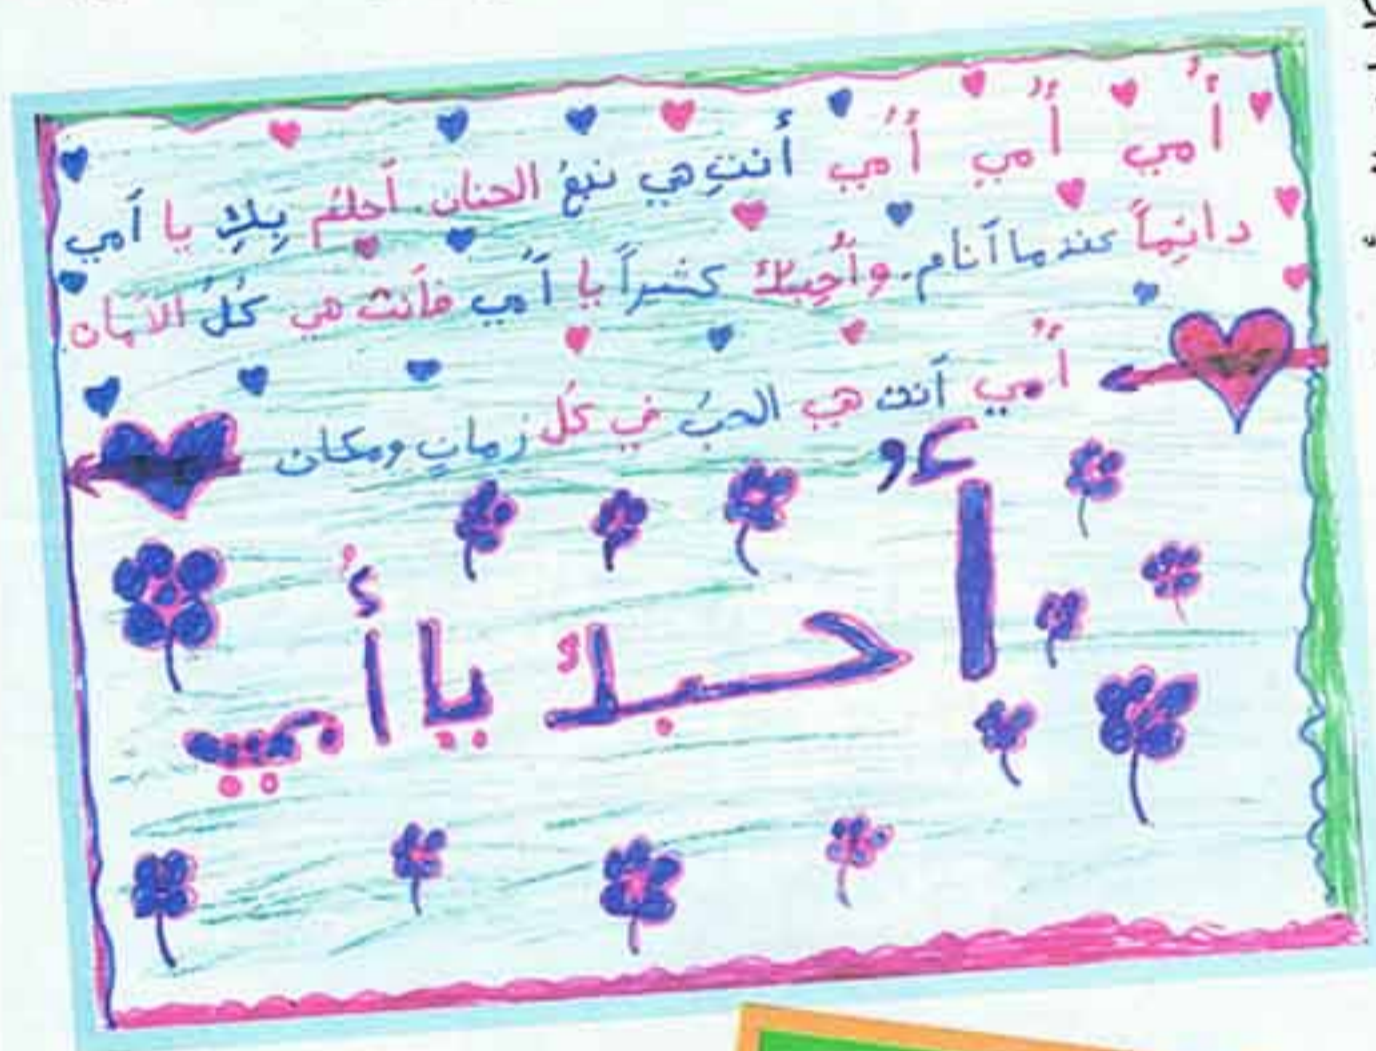 أُمي أُمي أُمي أنتِ هي نبعُ الحنان. أحلمُ بِكِ يا أمي
دائِماً عندما أنام. وأُحِبك كثيراً يا أُمي فأنت هي كُلُ الأمان
أُمي أنت هي الحبُ في كُل زمانٍ ومكان
أُحبكِ يا أُمي